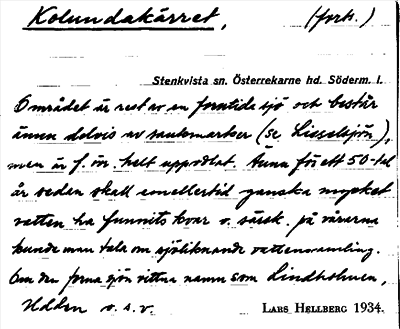 Kolundakärret, (forts.)
Stenkvista sn. Österrekarne hd. Söderm. l.
Området är rest av en forntida sjö och består
ännu delvis av sankmarker (se Lisselsjön),
men är f. ön. helt uppodlat. Ännu för ett 50-tal
år sedan skall emellertid ganska mycket
vatten ha funnits kvar o. särsk. på vårarna
kunde man tala om sjöliknande vattensamling.
Om den forna sjön vittna namn som Lindholmen,
Udden o. s. v.
LARS HELLBERG 1934.